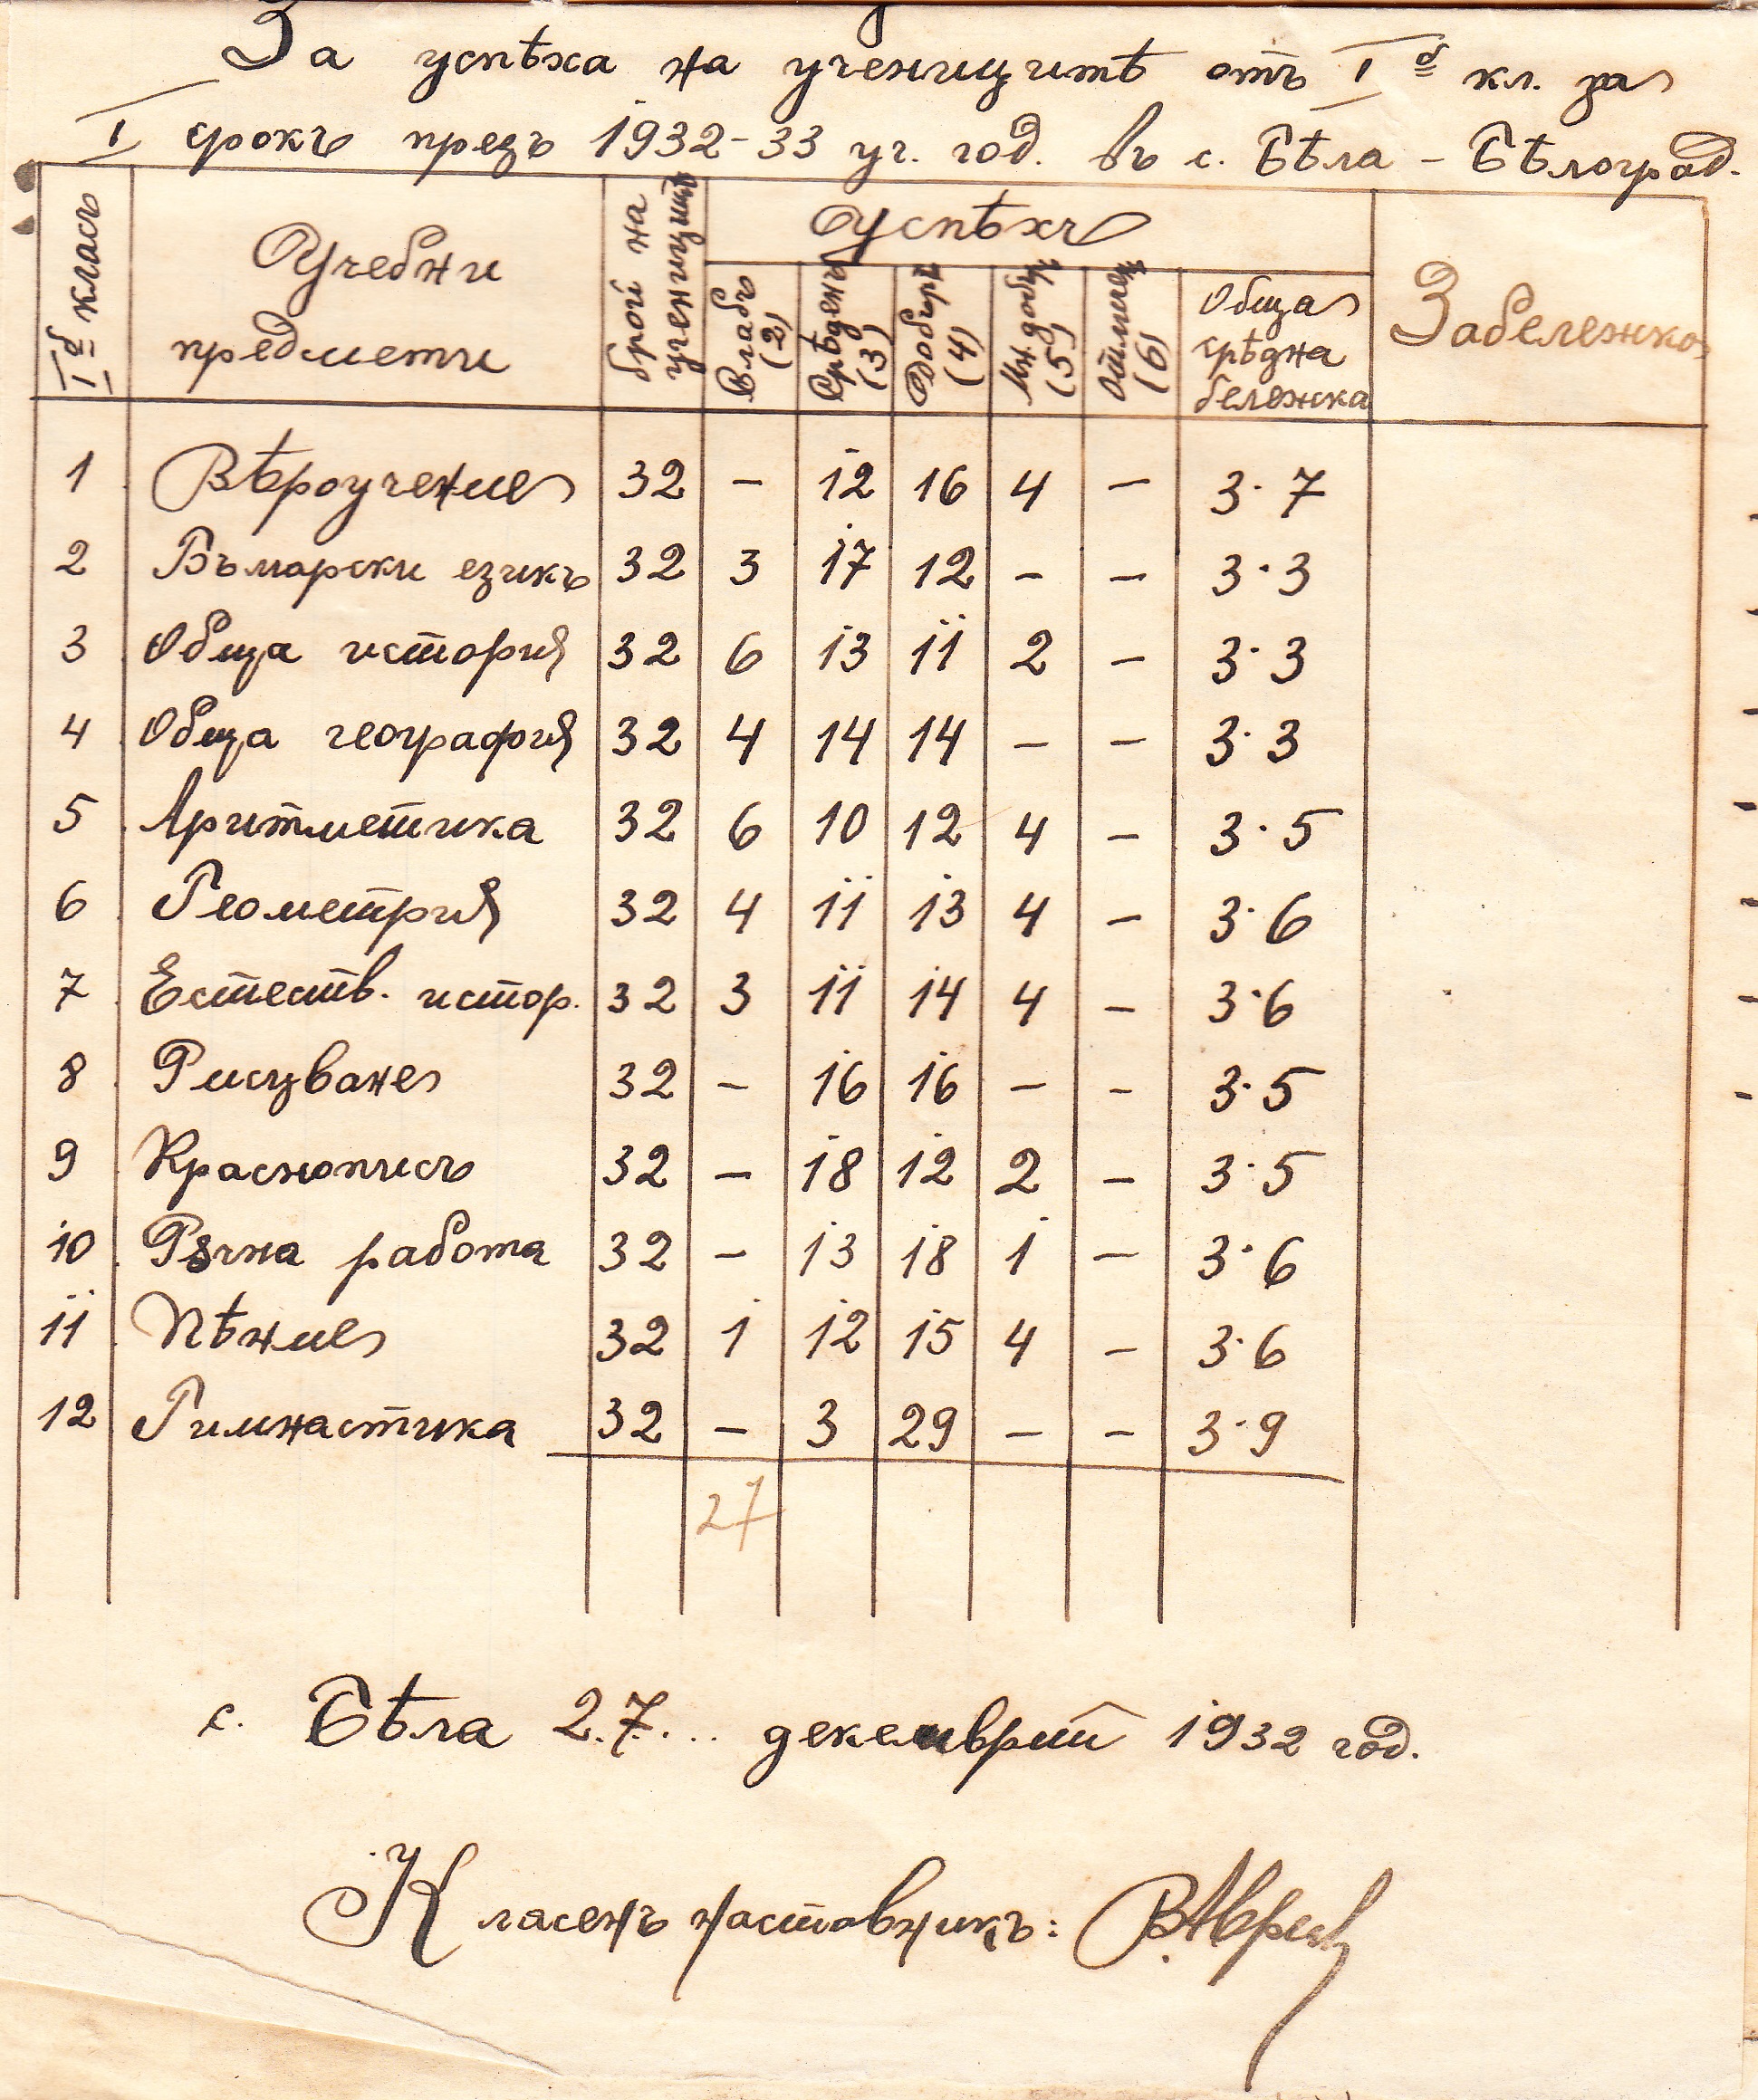 За успѣха на ученицитѣ отъ I б кл. за
I срокъ презъ 1932-33 уч. год. въ с. Бѣла - Бѣлоград.
I б класъ | Учебни предмети | брой на ученицитѣ | Успѣхъ | Забележка
Слабъ (2) | Срѣденъ (3) | Добъръ (4) | Мн. добъръ (5) | Отличенъ (6) | Обща срѣдна бележка
1 Вѣроучение 32 - 12 16 4 - 3.7
2 Български езикъ 32 3 17 12 - - 3.3
3 Обща история 32 6 13 11 2 - 3.3
4 Обща география 32 4 14 14 - - 3.3
5 Аритметика 32 6 10 12 4 - 3.5
6 Геометрия 32 4 11 13 4 - 3.6
7 Естеств. истор. 32 3 11 14 4 - 3.6
8 Рисуване 32 - 16 16 - - 3.5
9 Краснописъ 32 - 18 12 2 - 3.5
10 Рѫчна работа 32 - 13 18 1 - 3.6
11 Пѣние 32 1 12 15 4 - 3.6
12 Гимнастика 32 - 3 29 - - 3.9
27
с. Бѣла 27... декемврий 1932 год.
Класенъ наставникъ: